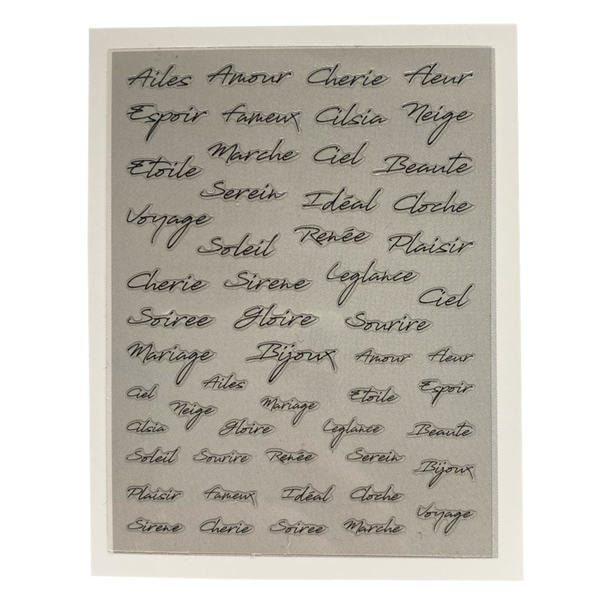 Ailes Amour Cherie fleur
Espoir fameux Cilsia Neige
Etoile Marche Ciel Beaute
Serein Idéal Cloche
Voyage Soleil Renée Plaisir
Cherie Sirene Leglance Ciel
Soiree Gloire Sourire
Mariage Bijoux Amour fleur
Ciel Ailes Etoile Espoir
Neige Mariage
Cilsia Gloire Leglance Beaute
Soleil Sourire Renée Serein Bijoux
Plaisir fameux Idéal Cloche Voyage
Sirene Cherie Soiree Marche